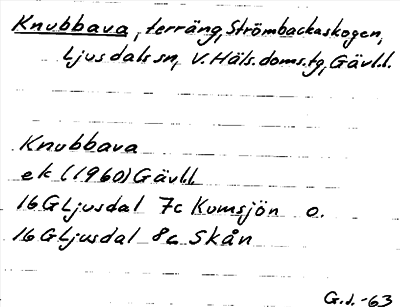 Knubbava, terräng, Strömbackaskogen,
Ljusdals sn, V. Häls. doms.tg, Gävl.l.
Knubbava
ek (1960) Gävl.l
16G Ljusdal 7c Kumsjön o.
16G Ljusdal 8c Skån
G.J.-63